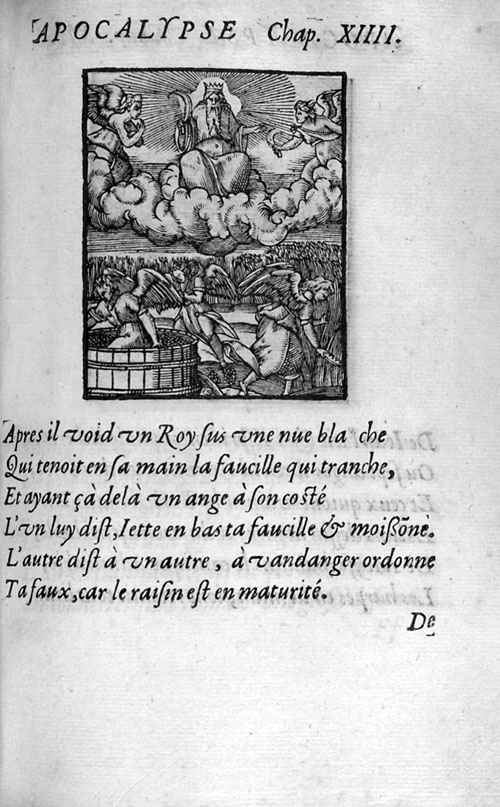 APOCALYPSE Chap. XIIII.
Apres il void vn Roy sus vne nue bla che
Qui tenoit en sa main la faucille qui tranche,
Et ayant çà delà vn ange à son costé
L'vn luy dist, Iette en bas ta faucille & moißõne.
L'autre dist à vn autre, à vandanger ordonne
Ta faux, car le raisin est en maturité.
De